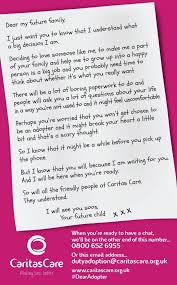 Dear my future family,
I just want you to know that I understand what
a big decision I am.
Deciding to love someone like me, to make me a part
of your family and help me to grow up into a happy
person is a big job and you probably need time to
think about whether it's what you really want
There will be a lot of boring paperwork to do and
people will ask you a lot of questions about your life
in a way you're not used to and it might feel uncomfortable.
Perhaps you're worried that you won't get chosen to
be an adopter and it might break your heart a little
bit and that's a scary thought.
So I know that it might be a while before you pick up
the phone.
But I know that you will, because I am waiting for you.
And I will be here when you're ready.
So will all the friendly people at Caritas Care.
They understand.
I will see you soon,
Your future child x x x
CaritasCare
When you're ready to have a chat,
we'll be on the other end of this number...
0800 652 6955
Or this email address..
dutyadoption@caritascare.org.uk
www.caritascare.org.uk
#DearAdopter